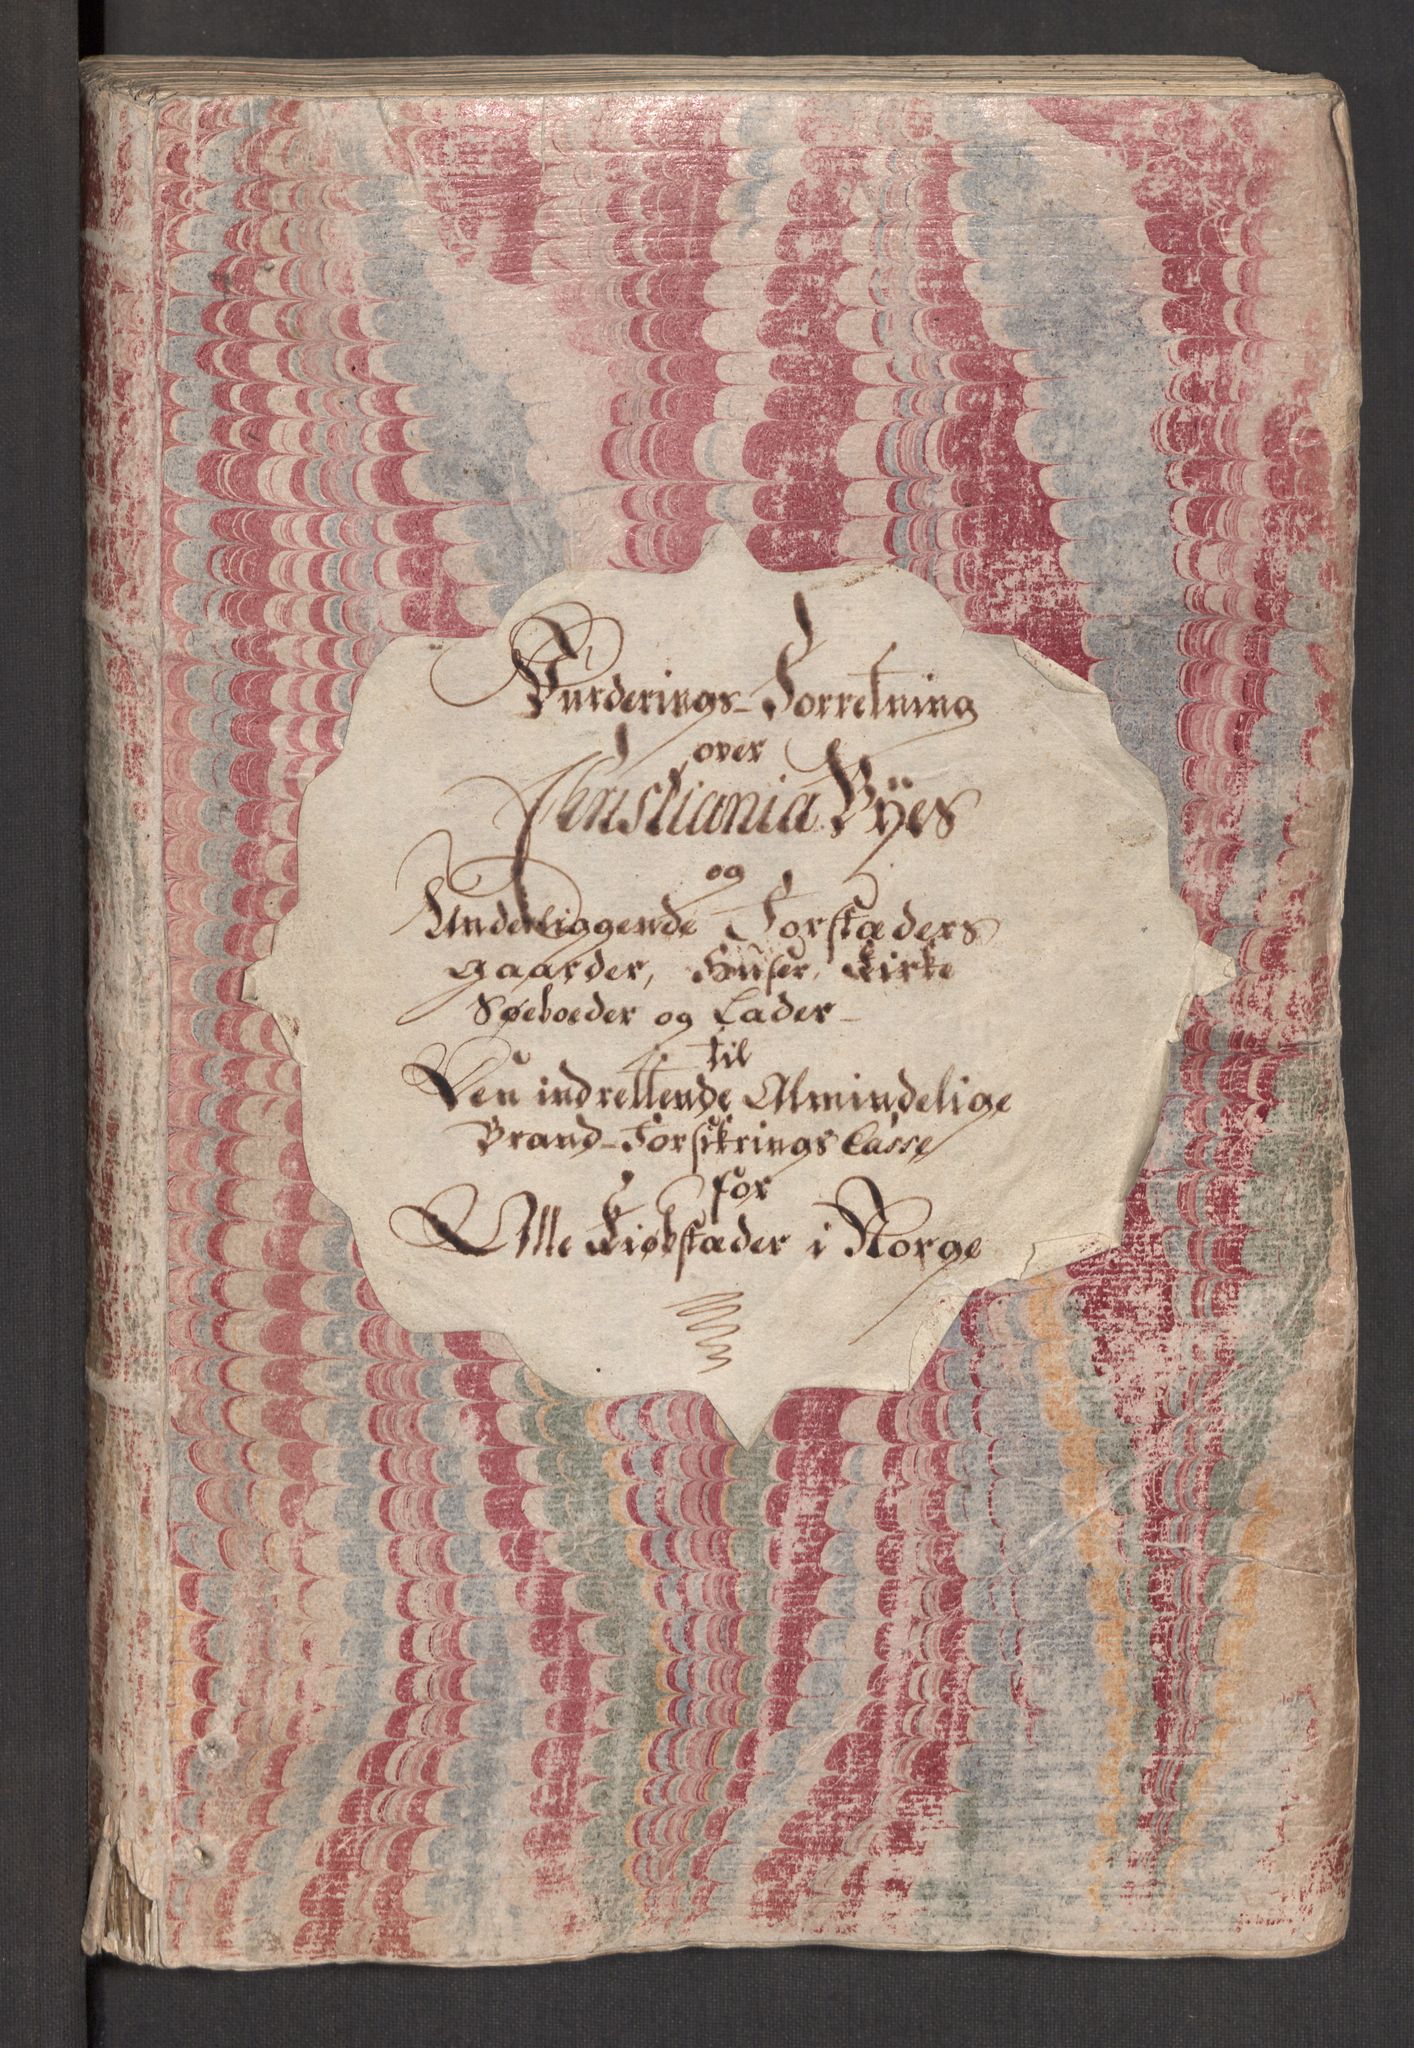 Vurderings-Forretning
over
Christiania Byes
og
Underliggende Forstæders
gaarder, Huser, Kirke
Søeboeder og Lader-
til
Den indrettende Almindelige
Brand-Forsikrings Casse
for
Alle Kiøbstæder i Norge